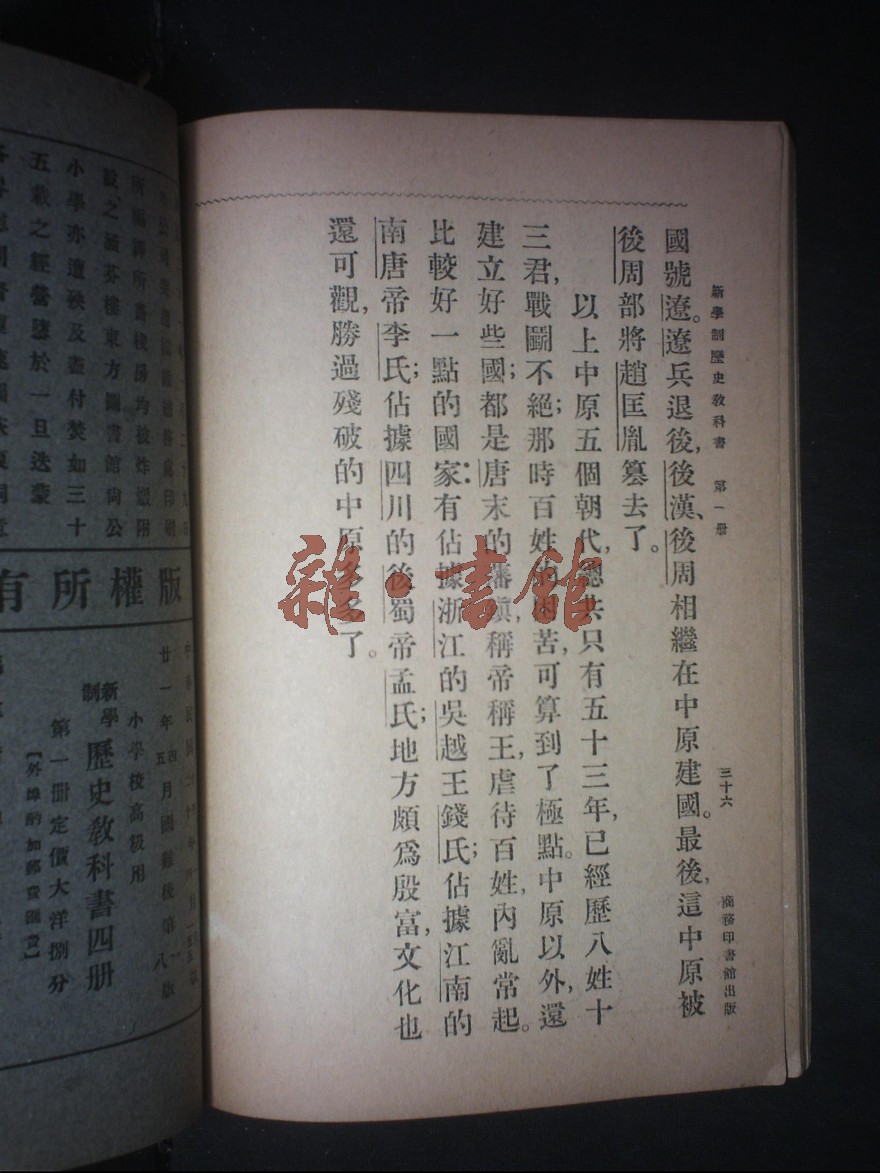 新學制歷史教科書　第一册　三十六　商務印書館出版
國號遼。遼兵退後，後漢、後周相繼在中原建國。最後，這中原被
後周部將趙匡胤篡去了。
以上中原五個朝代，總共只有五十三年，已經歷八姓十
三君，戰鬭不絕；那時百姓的困苦，可算到了極點。中原以外，還
建立好些國；都是唐末的藩鎮，稱帝稱王，虐待百姓，內亂常起。
比較好一點的國家：有佔據浙江的吳越王錢氏；佔據江南的
南唐帝李氏；佔據四川的後蜀帝孟氏；地方頗爲殷富，文化也
還可觀，勝過殘破的中原多多了。
雜·書館
所編譯所棧房均被炸燬附
設之涵芬樓東方圖書館尙公
小學亦遭殃及盡付焚如三十
五載之經營隳於一旦迭蒙
版權所有
廿一年四五月國難後第一八版
小學校高級用
新學制歷史教科書四册
第一册定價大洋捌分
【外埠酌加郵費匯費】